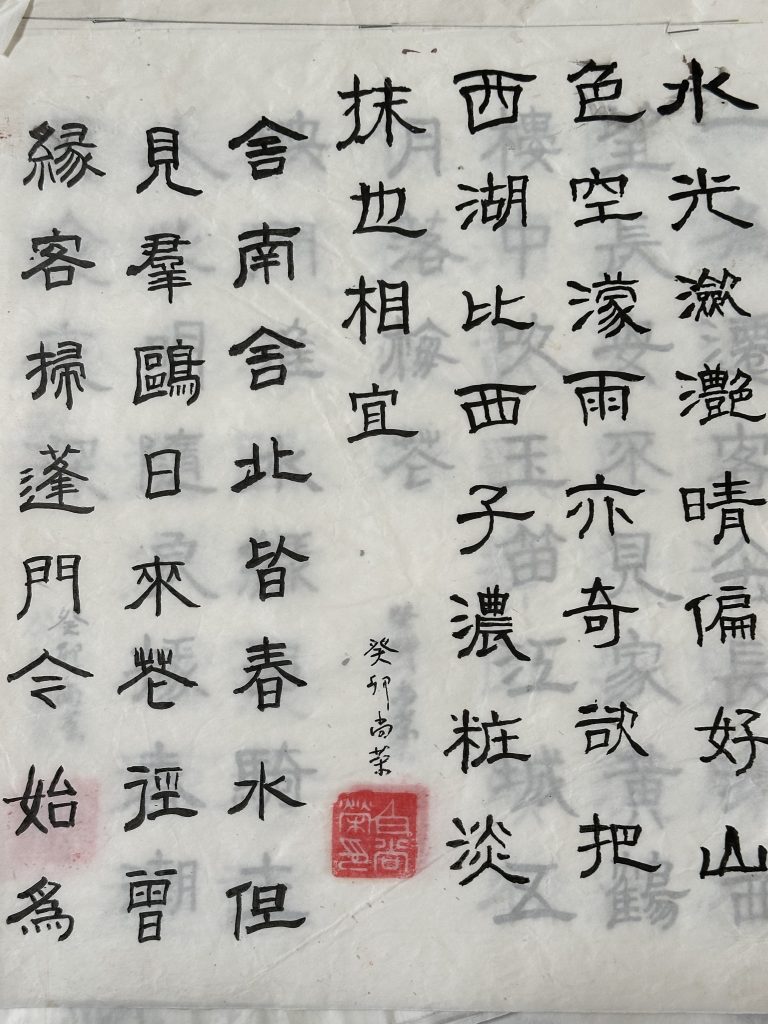 水光瀲灧晴偏好山
色空濛雨亦奇欲把
西湖比西子濃粧淡
抹也相宜
癸卯尚荣
白尚榮印
舍南舍北皆春水但
見羣鷗日來花徑曾
縁客掃蓬門今始爲